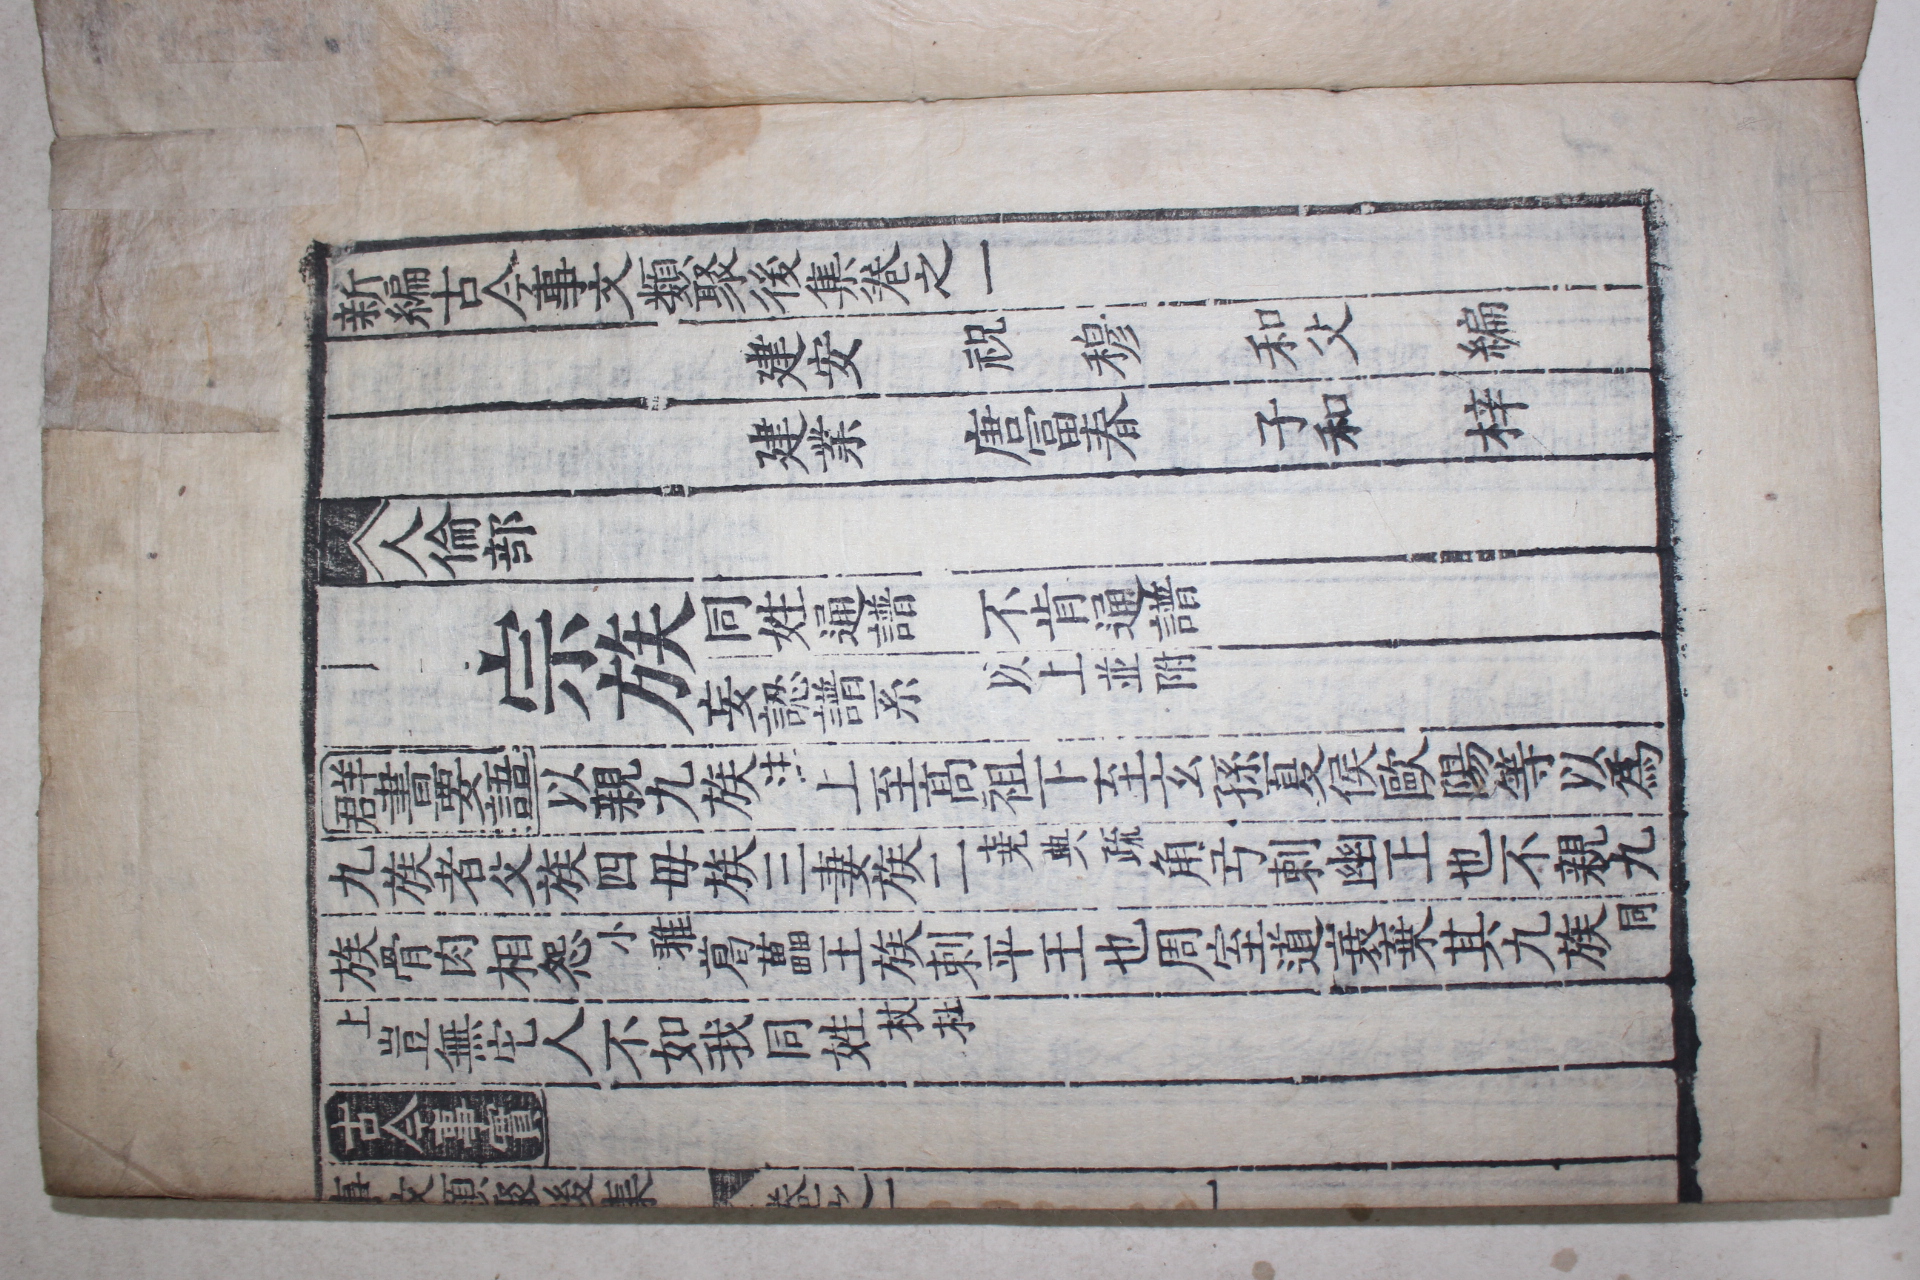 新編古今事文類聚後集卷之一
建安 祝 穆 和父 編
建業 唐富春 子和 梓
人倫部
宗族 同姓通譜 不肯通譜
妄認譜系 以上並附
群書要語 以親九族 注 上至高祖下至玄孫夏侯歐陽等以爲
九族者父族四母族三妻族二 堯典疏 角弓刺幽王也不親九
族骨肉相怨 小雅 葛藟王族刺平王也周室道衰棄其九族 同
上 豈無它人不如我同姓 杕杜
古今事實
事文類聚後集 卷之一 一